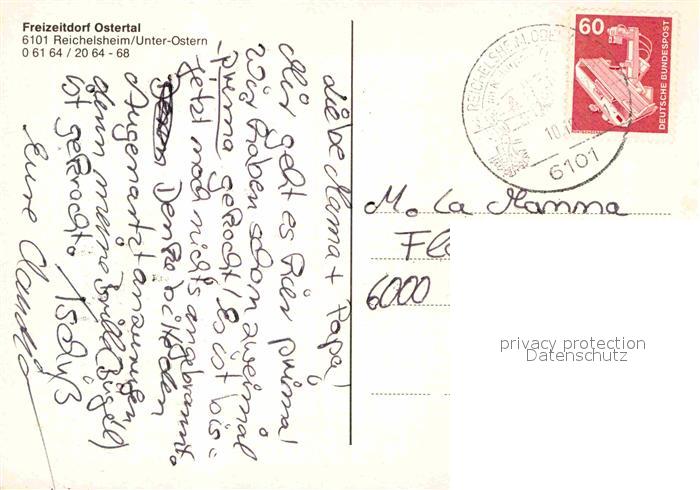 Freizeitdorf Ostertal
6101 Reichelsheim/Unter-Ostern
0 61 64 / 20 64 - 68
Liebe Mama + Papa!
Mir geht es hier prima!
Wir haben schon zweimal
prima gekocht! Es ist bis=
jetzt noch nichts angebrannt.
Denke bitte den
Augenarzt anzurufen
denn meine Brille (Bügel)
ist gekracht. Tschüß
Eure
60
DEUTSCHE BUNDESPOST
REICHELSHEIM, ODE
10.1
6101
M. La Manna
Fl
6000
privacy protection
Datenschutz